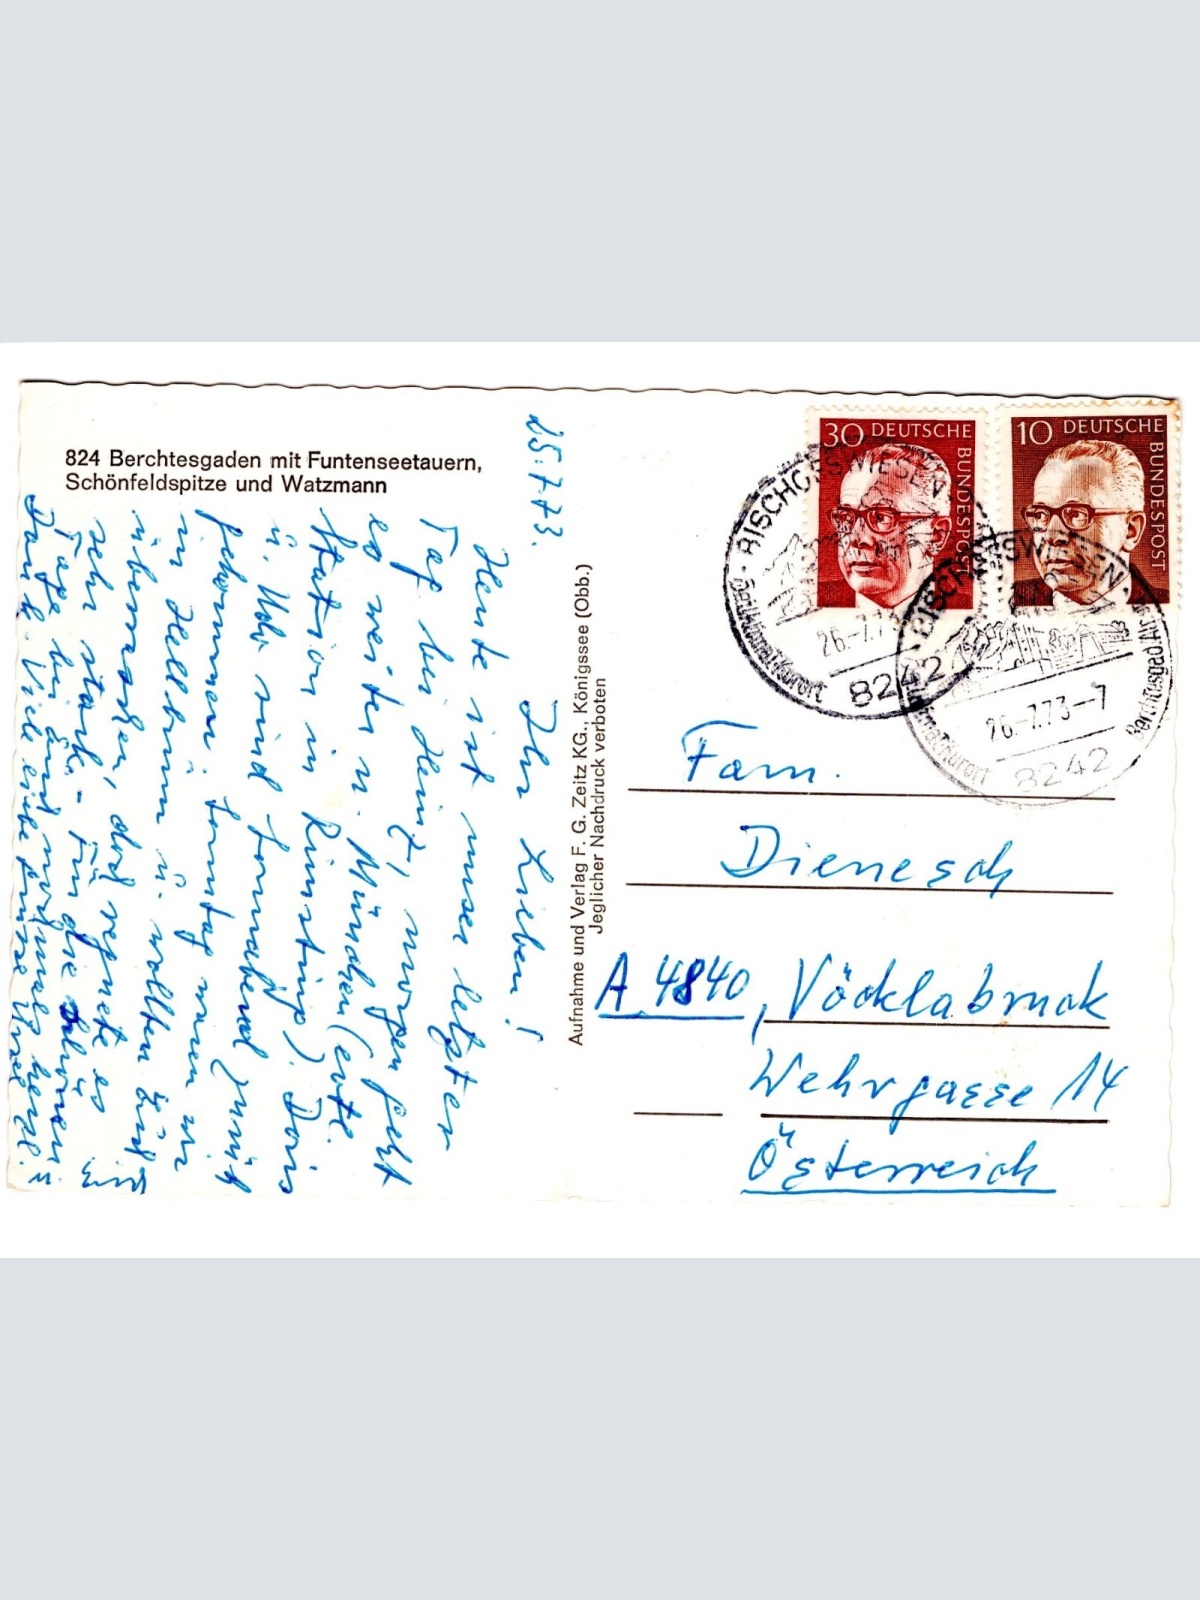 824 Berchtesgaden mit Funtenseetauern,
Schönfeldspitze und Watzmann
25.7.73.
Ihr Lieben!
Heute ist unser letzter
Tag bei Heinz, morgen geht
es weiter n. München (evtl.
Station in Rimsting). Doris
u. Udo sind Sonnabend zurück
gekommen. Sonntag waren wir
in Hellbrunn u. wollten Euch
überraschen, doch regnete es
sehr stark. - Für die schönen
Tage bei Euch nochmals herzl.
Dank. Viele liebe Grüsse
Aufnahme und Verlag F. G. Zeitz KG., Königssee (Obb.)
Jeglicher Nachdruck verboten
30 DEUTSCHE BUNDESPOST
10 DEUTSCHE BUNDESPOST
BISCHOFSWIESEN
Heilklimat. Kurort
26.-7.73
8242
BISCHOFSWIESEN
Heilklimat. Kurort
Berchtesgad. Alpen
26.-7.73-7
8242
Fam.
Dienesch
A 4840, Vöcklabruck
Wehrgasse 14
Österreich